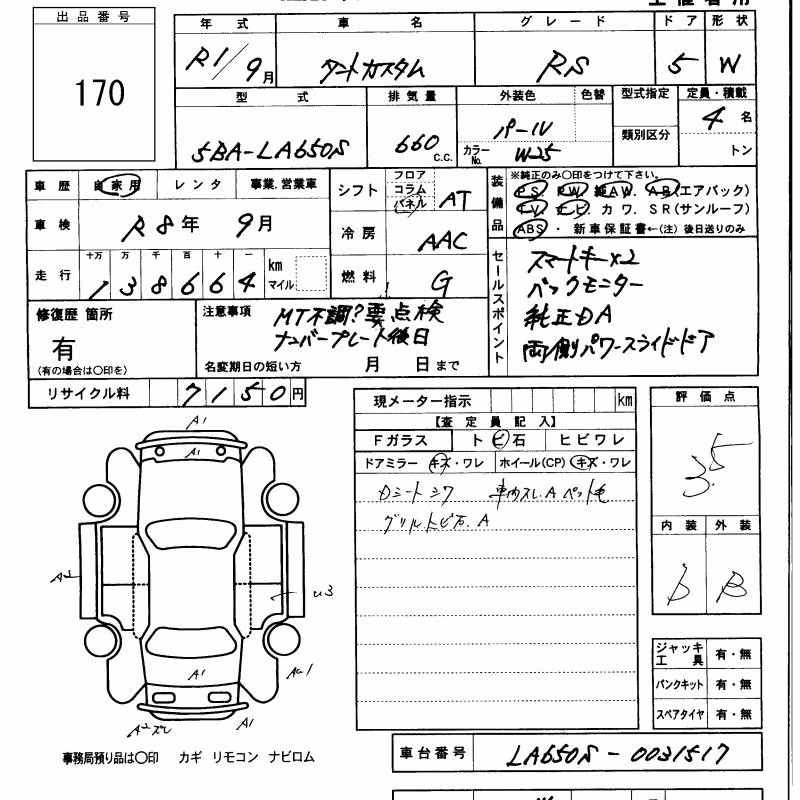 出品番号
170
年 式
R1/9月
車 名
タントカスタム
グレード
RS
ドア
5
形状
W
型 式
5BA-LA650S
排気量
660 c.c.
外装色
パール
カラーNo.
W-25
色替
型式指定
類別区分
定員・積載
4 名
トン
車歴 自家用 レンタ 事業.営業車
車検 R8年 9月
走行 十万 万 千 百 十 一
138664 km マイル
シフト フロア コラム パネル AT
冷房 AAC
燃料 G
装備品
※純正のみ〇印をつけて下さい。
PS PW 純AW. AB(エアバック)
TV. ナビ カワ. SR(サンルーフ)
ABS ・ 新車保証書←(注) 後日送りのみ
セールスポイント
スマートキーx2
バックモニター
純正DA
両側パワースライドドア
修復歴 箇所
有
(有の場合は〇印を)
注意事項
MT不調?要点検
ナンバープレート後日
名変期日の短い方 月 日まで
リサイクル料 7150円
現メーター指示 km
【査定員記入】
Fガラス トビ石 ヒビワレ
ドアミラー キズ・ワレ ホイール(CP) キズ・ワレ
Dシートシワ 車内スレ.A ペット毛
グリルトビ石.A
評価点
3.5
内装 外装
b B
A1
A1
A2
U3
A1
A2スレ
A1
ジャッキ工具 有・無
パンクキット 有・無
スペアタイヤ 有・無
事務局預り品は〇印 カギ リモコン ナビロム
車台番号 LA650S-0031517